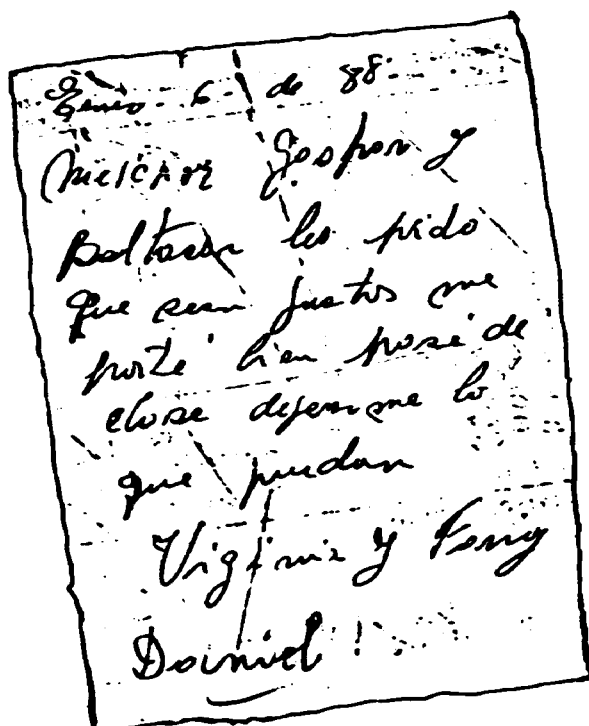 Enero 6 de 88
Melchor Gaspar y
Baltasar les pido
que sean justos me
porté bien pasé de
clase dejenme lo
que puedan
Virginia y Fany
Daniel!